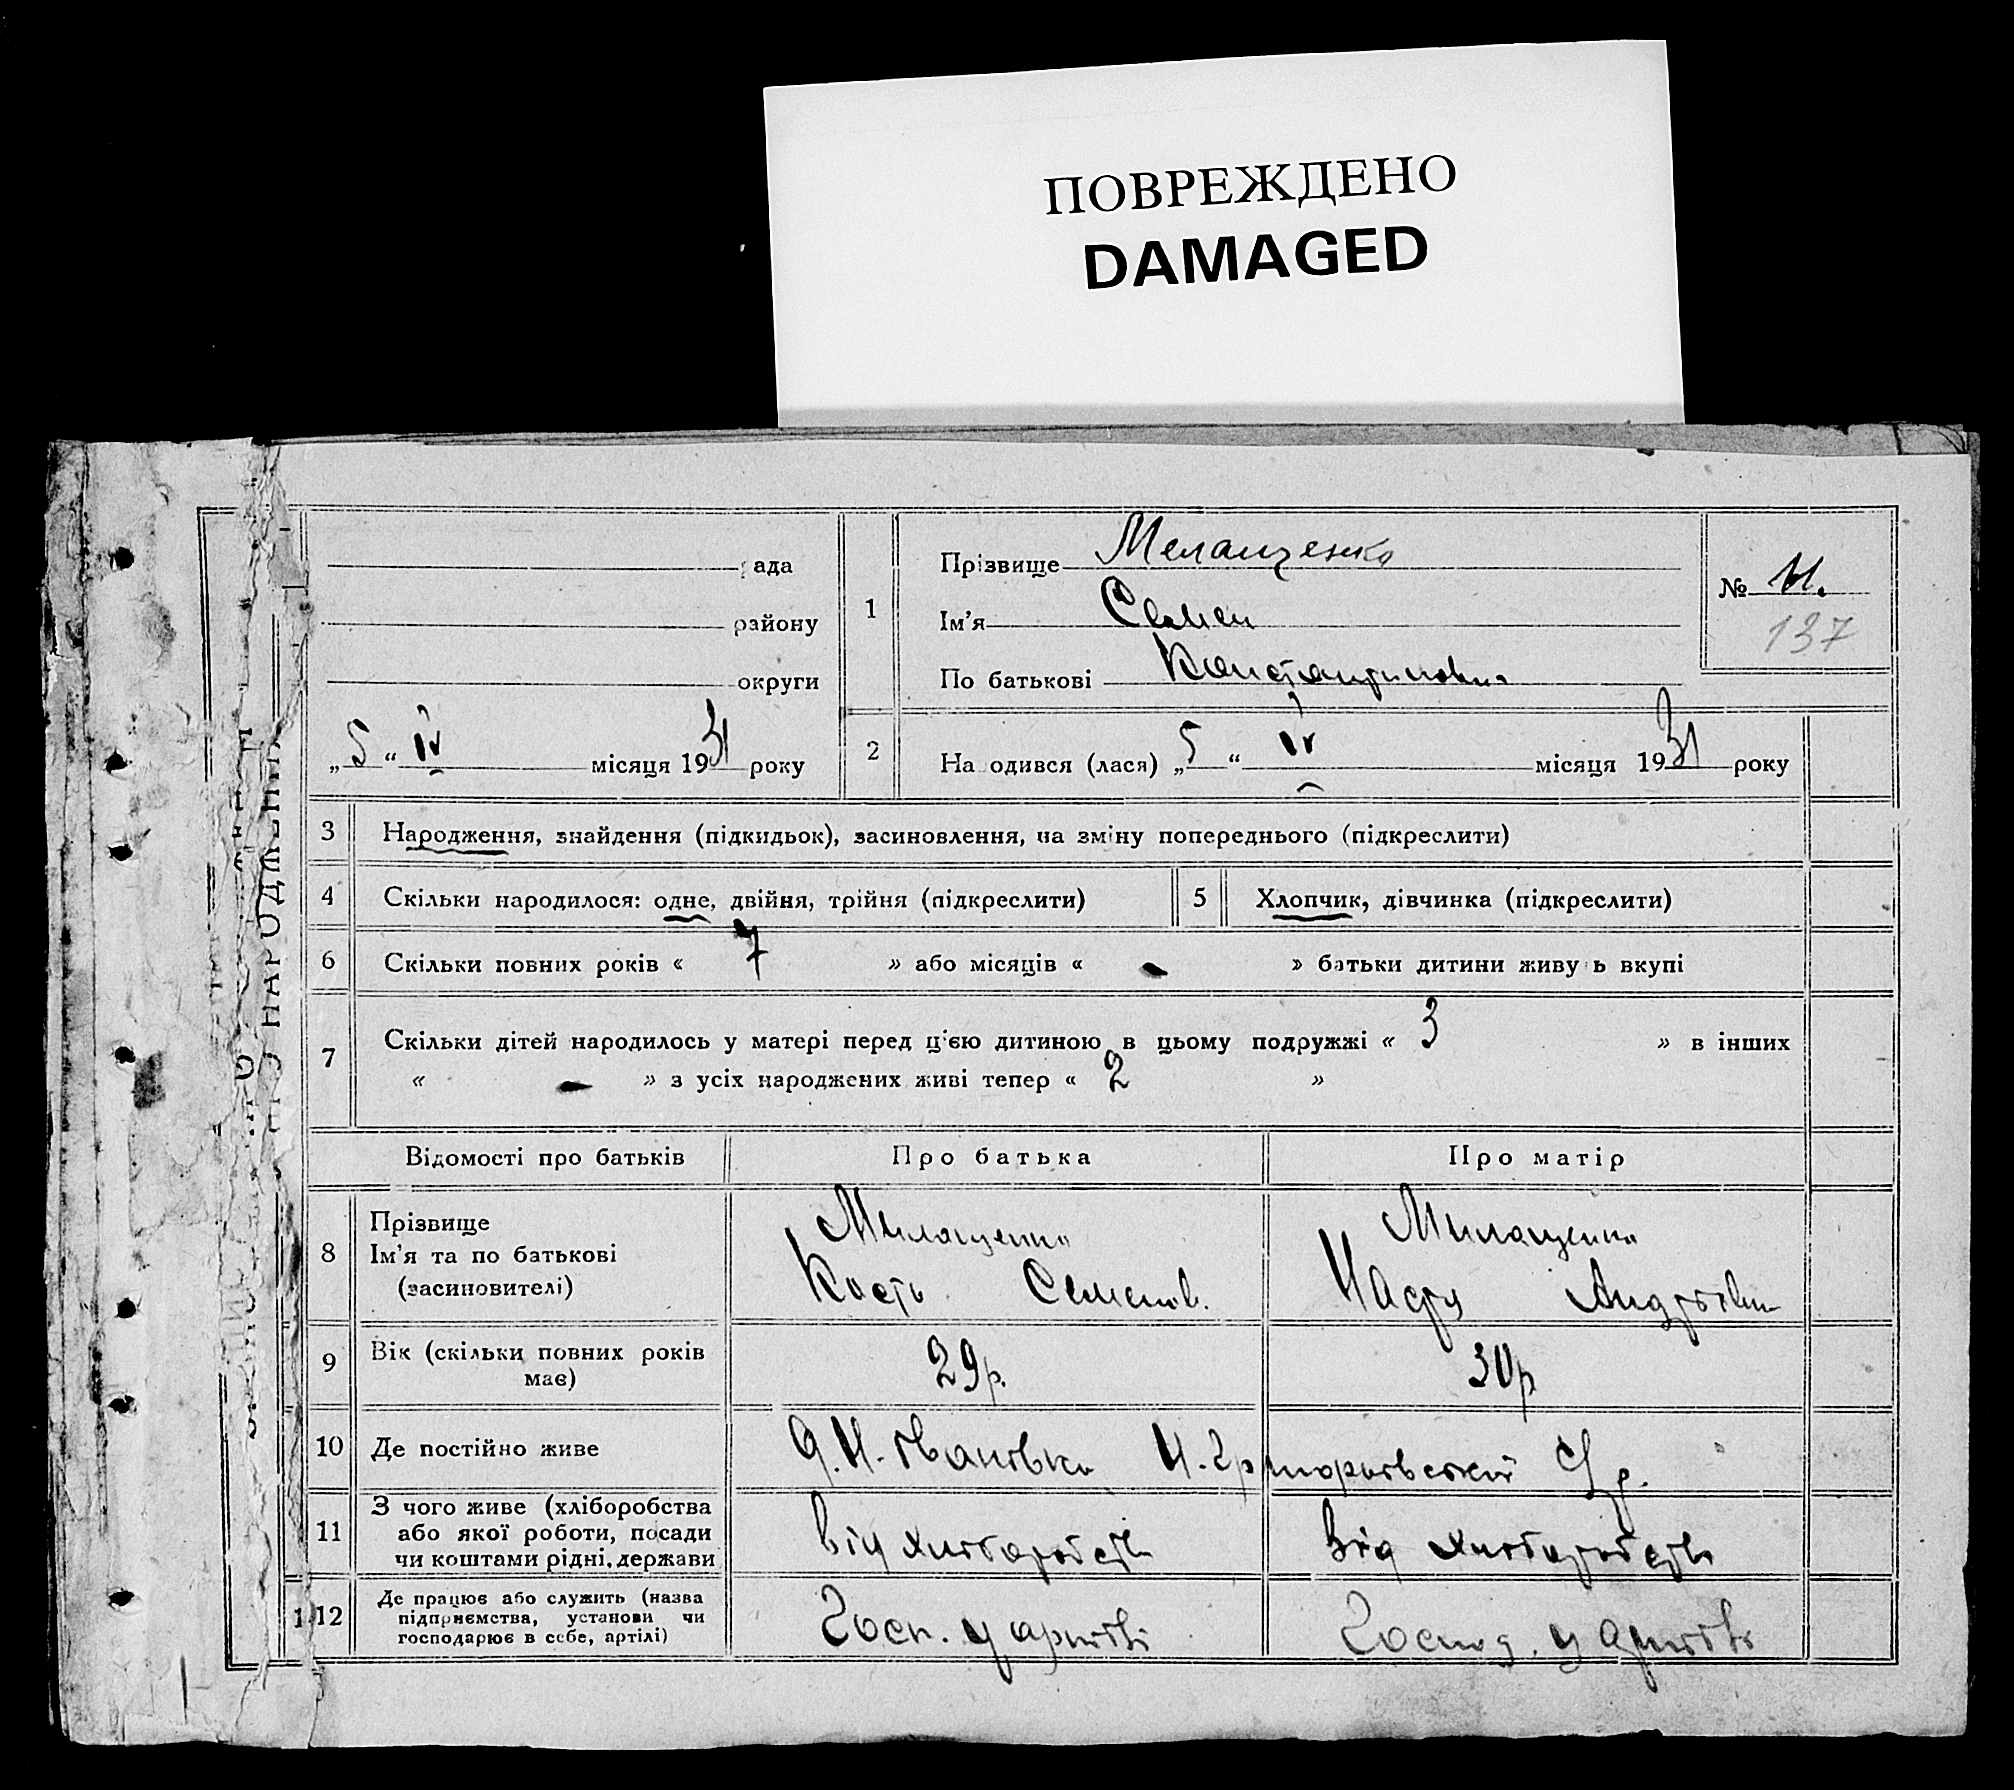 ПОВРЕЖДЕНО
DAMAGED
рада
району
округи
„5“ IV місяця 1931 року
1
Прізвище Мелащенко
Ім'я Семен
По батькові Константинович
№ 11.
137
2
На одився (лася) „5“ IV місяця 1931 року
3 Народження, знайдення (підкидьок), засиновлення, на зміну попереднього (підкреслити)
4 Скільки народилося: одне, двійня, трійня (підкреслити)
5 Хлопчик, дівчинка (підкреслити)
6 Скільки повних років « 7 » або місяців « - » батьки дитини живу ь вкупі
7 Скільки дітей народилось у матері перед ц'єю дитиною в цьому подружжі « 3 » в інших
« - » з усіх народжених живі тепер « 2 »
Відомості про батьків Про батька Про матір
8
Прізвище
Ім'я та по батькові
(засиновителі)
Милащенко
Кость Семенов.
Милащенко
Настя Андріївна
9
Вік (скільки повних років
має)
29р.
30р
10 Де постійно живе
Н. Григорьевский
11
З чого живе (хліборобства
або якої роботи, посади
чи коштами рідні, держави
від хліборобств
від хліборобств
12
Де працює або служить (назва
підприємства, установи чи
господарює в себе, артілі)
Госп. у артілі
Господ. у артілі
НАРОДЖЕННЯ